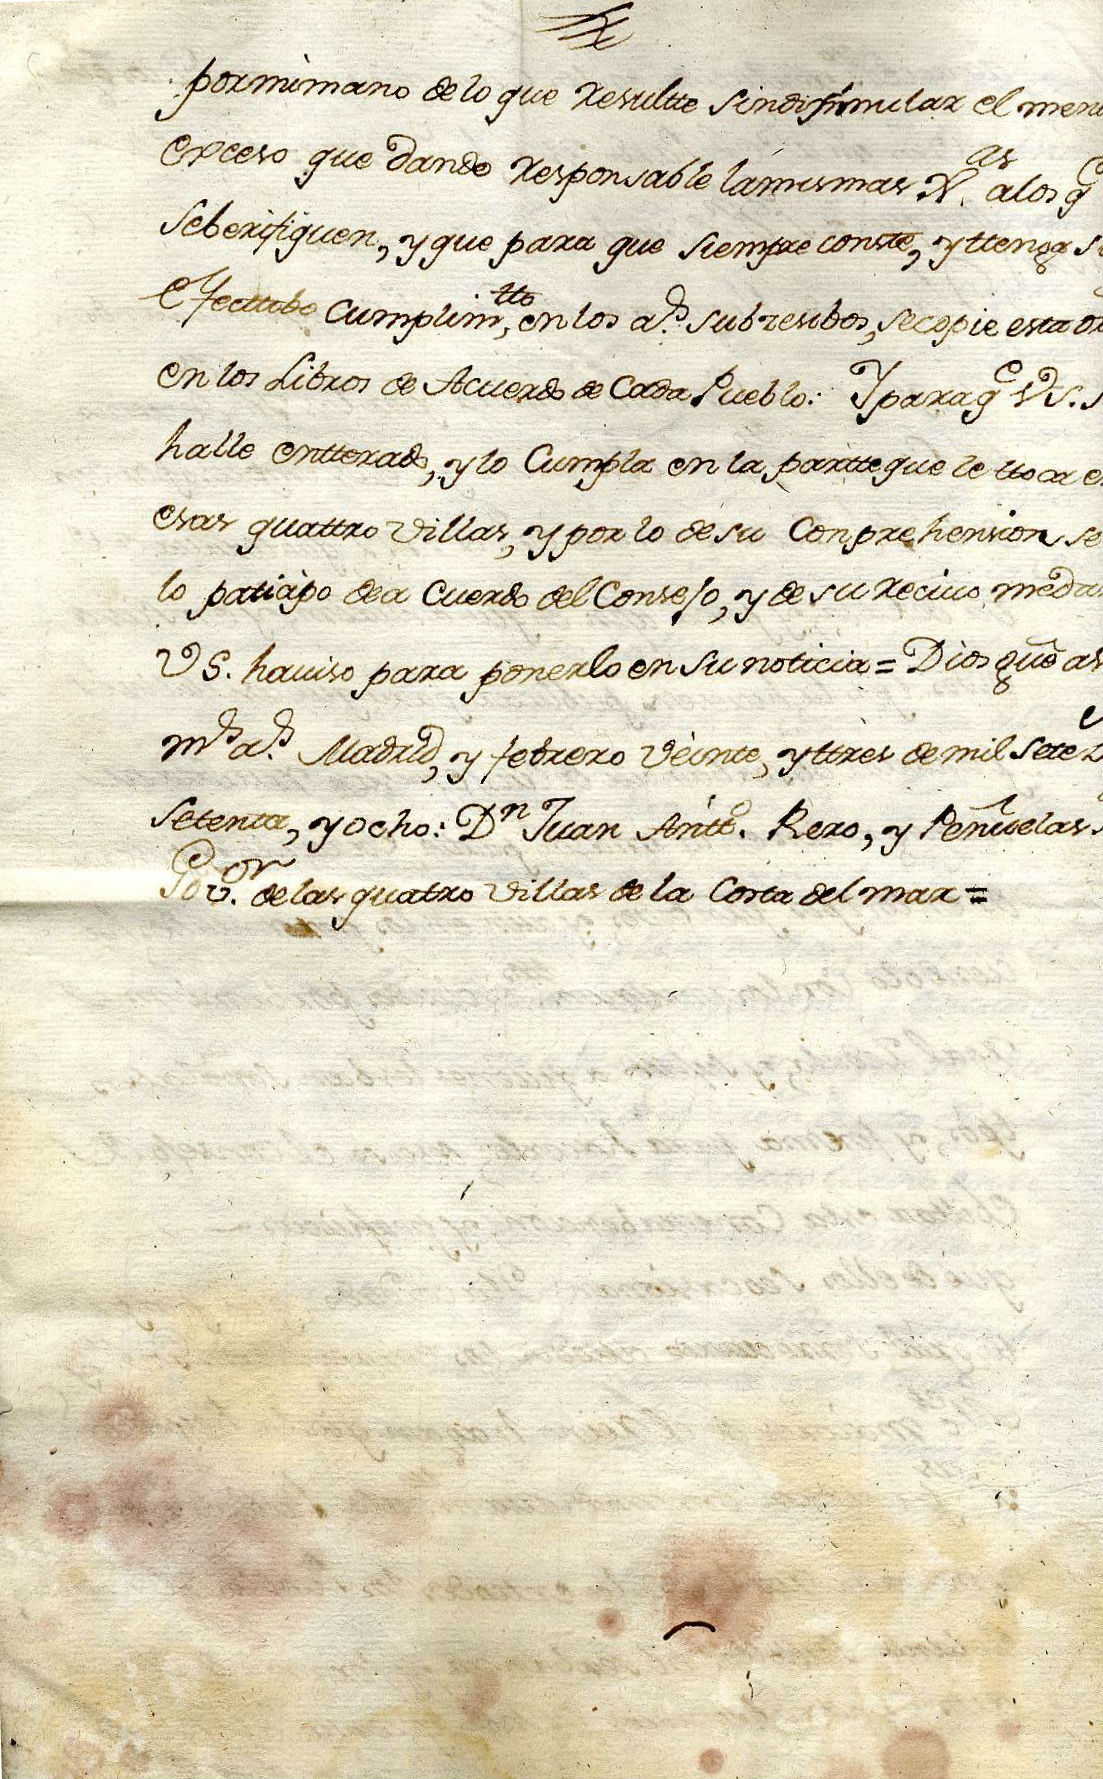 por mi mano de lo que Resultte sin disimular el men
exceso que dando Responsable las mismas R.as a los q
se berifiquen, y que para que siempre conste, y ttenga s
efecttibo Cumplim.tto, en los a.s subzesibos, se copie esta or
en los Libros de Acuerdo de Cada Pueblo: Y para q.e V.S. s
halle entterado, y lo Cumpla en la partte que le ttoca e
esas quattro Villas, y por lo de su Conprehension se
lo patiapo de a Cuerdo del Consejo, y de su Reciuo me dar
VS. hauiso para ponerlo en su noticia = Dios gue a VS
m.s a.s Madrid, y febrero Veinte, y ttres de mil Sete z
Setenta, y ocho: D.n Juan Antt.o Rero, y Peñuelas
Gov.or de las quatro Villas de la Costa del mar =